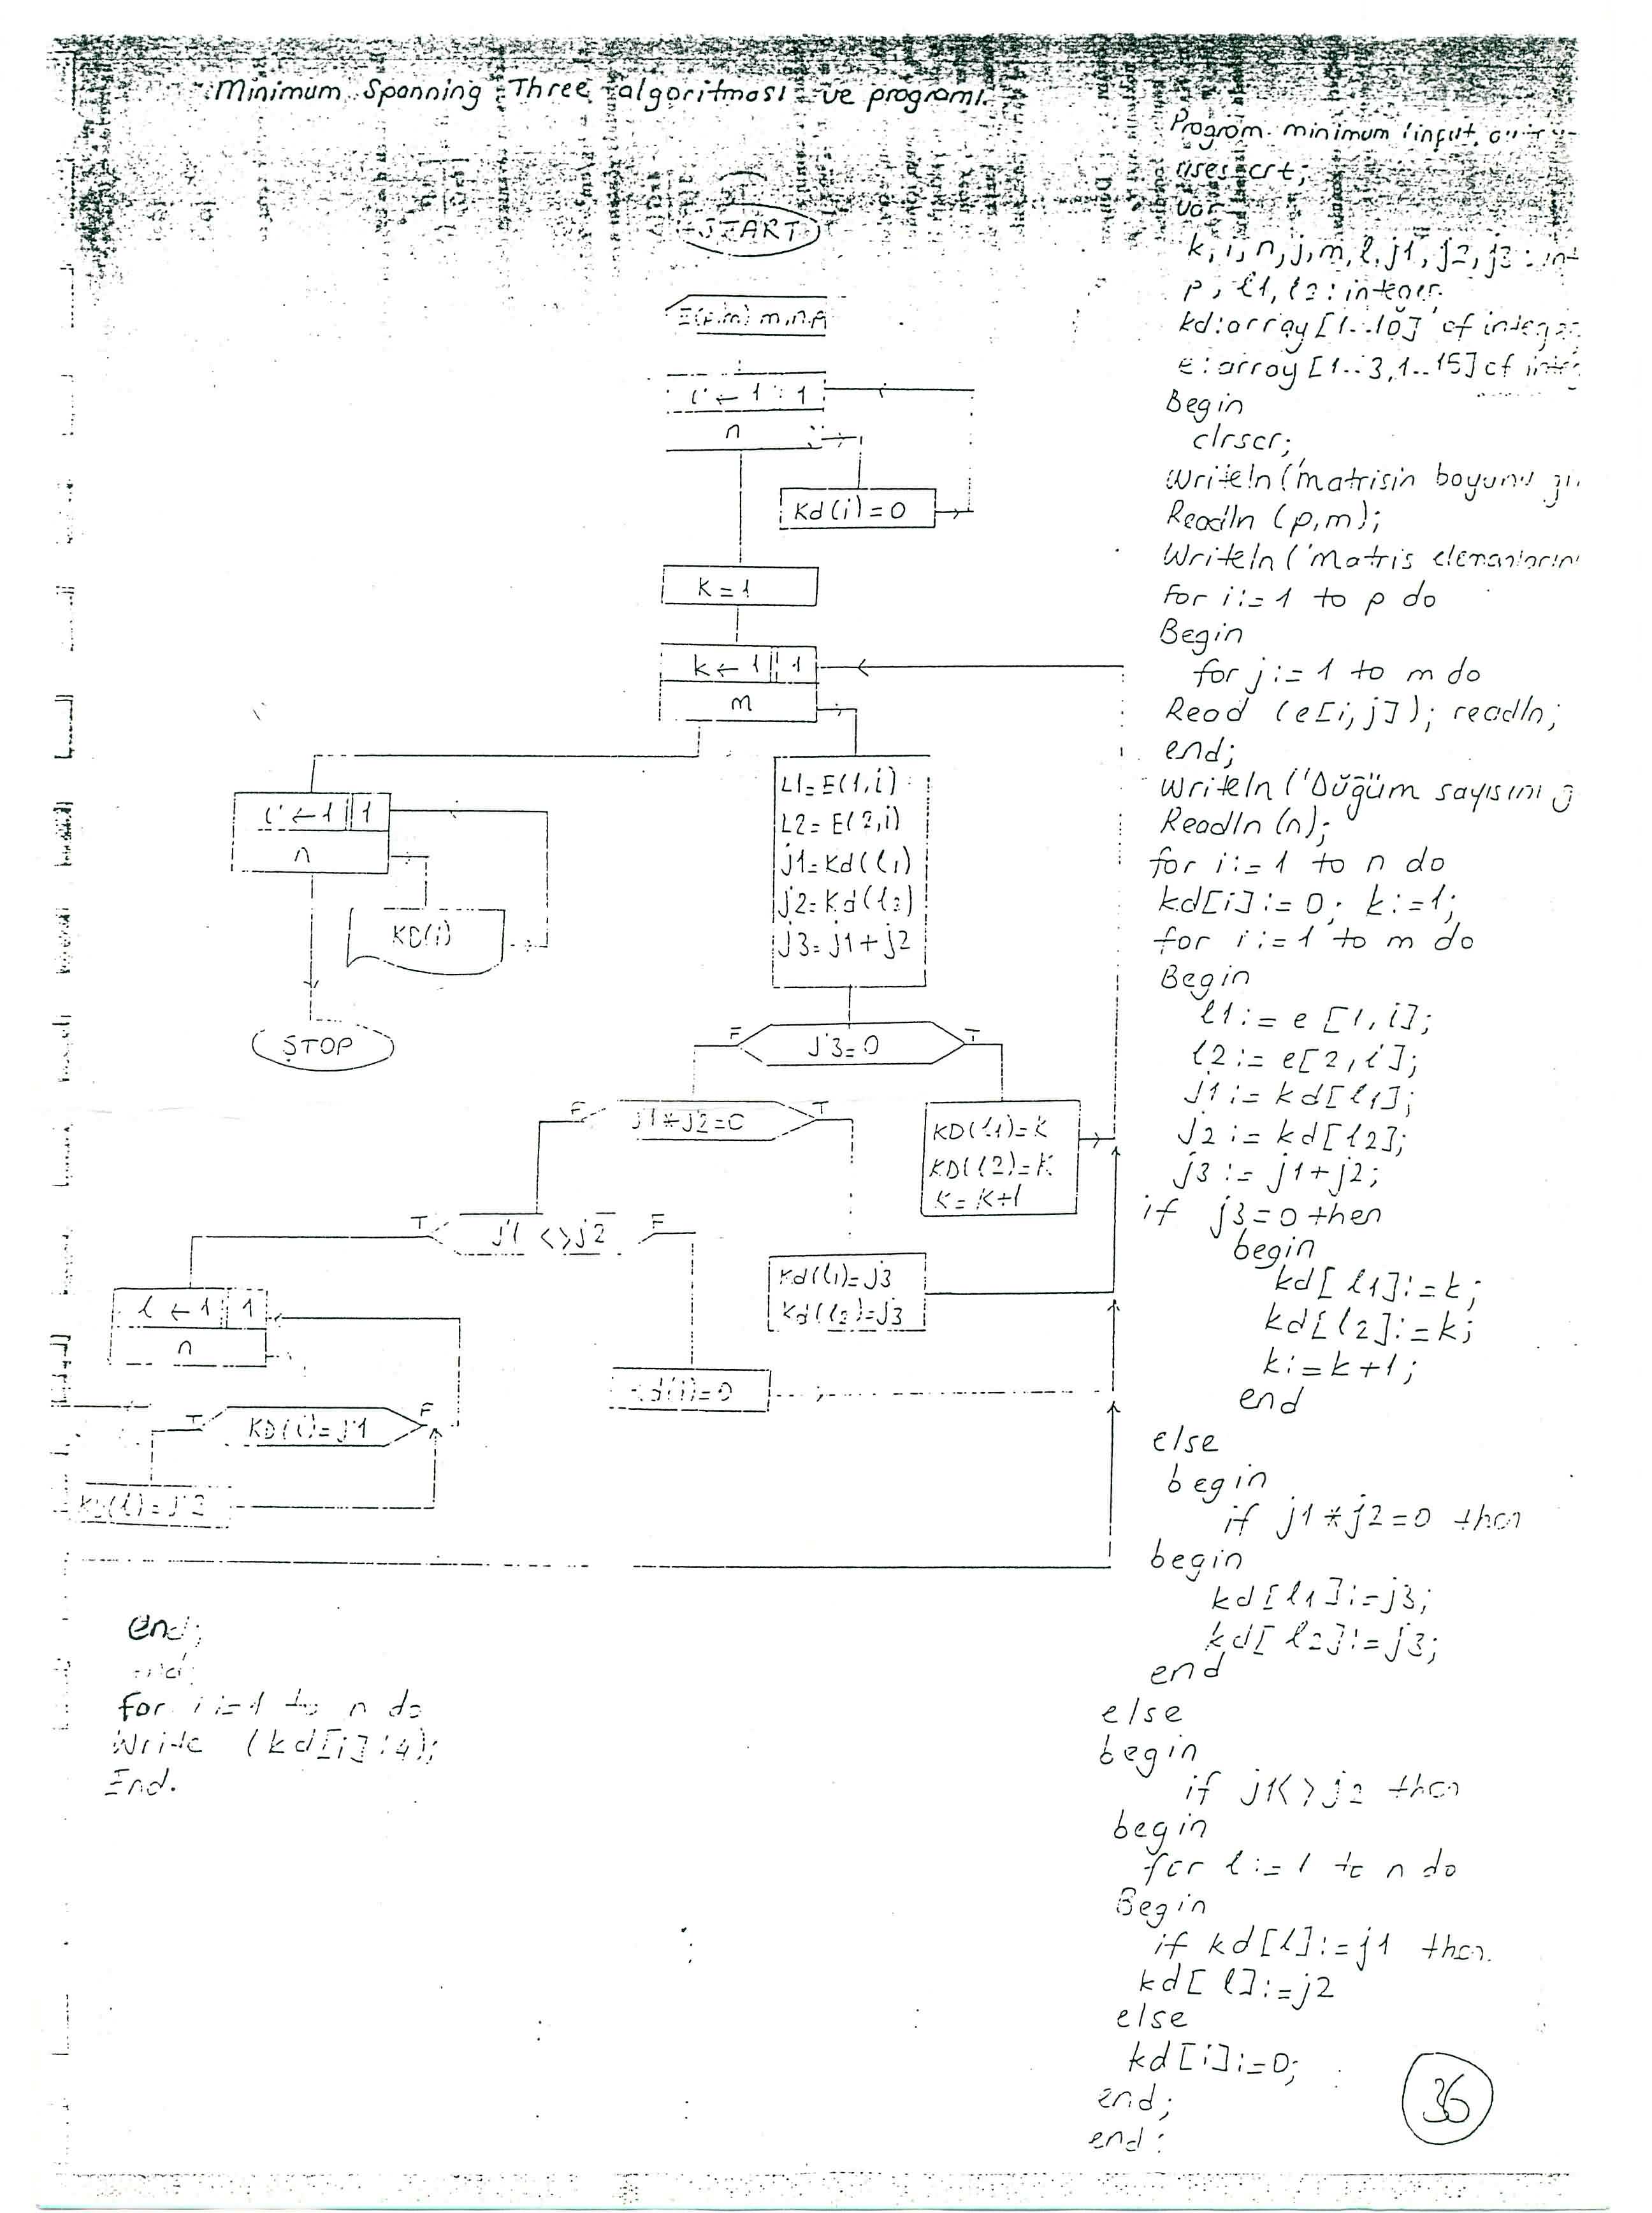 Minimum Spanning Three algoritması ve programı.
START
E(p,m) m,n,p
i ← 1 1
n
Kd(i)=0
K=1
k ← 1 1
m
L1=E(1,i)
L2=E(2,i)
j1=Kd(l1)
j2=Kd(l2)
j3=j1+j2
i ← 1 1
n
KD(i)
STOP
F j3=0 T
F j1*j2=0 T
KD(l1)=K
KD(l2)=K
K=K+1
T j1 <> j2 F
Kd(l1)=j3
Kd(l2)=j3
l ← 1 1
n
d(i)=0
T KD(l)=j1 F
KD(l)=j2
Program minimum (input,
uses crt;
var
k,i,n,j,m,l,j1,j2,j3: int
p, l1, l2: integer
kd:array [1..10] of integer
e:array [1..3,1..15] of integ
Begin
clrscr;
Writeln ('matrisin boyunu
Readln (p,m);
Writeln ('Matris elemanlarını
for i:=1 to p do
Begin
for j:=1 to m do
Read (e[i,j]); readln;
end;
Writeln ('Düğüm sayısını g
Readln (n);
for i:=1 to n do
kd[i]:=0; k:=1;
for i:=1 to m do
Begin
l1:=e[1,i];
l2:=e[2,i];
j1:=kd[l1];
j2:=kd[l2];
j3:=j1+j2;
if j3=0 then
begin
kd[l1]:=k;
kd[l2]:=k;
k:=k+1;
end
else
begin
if j1*j2=0 then
begin
kd[l1]:=j3;
kd[l2]:=j3;
end
else
begin
if j1<>j2 then
begin
for l:=1 to n do
Begin
if kd[l]:=j1 then
kd[l]:=j2
else
kd[i]:=0;
end;
end;
end;
end;
for i:=1 to n do
Write (kd[i]:4);
End.
36